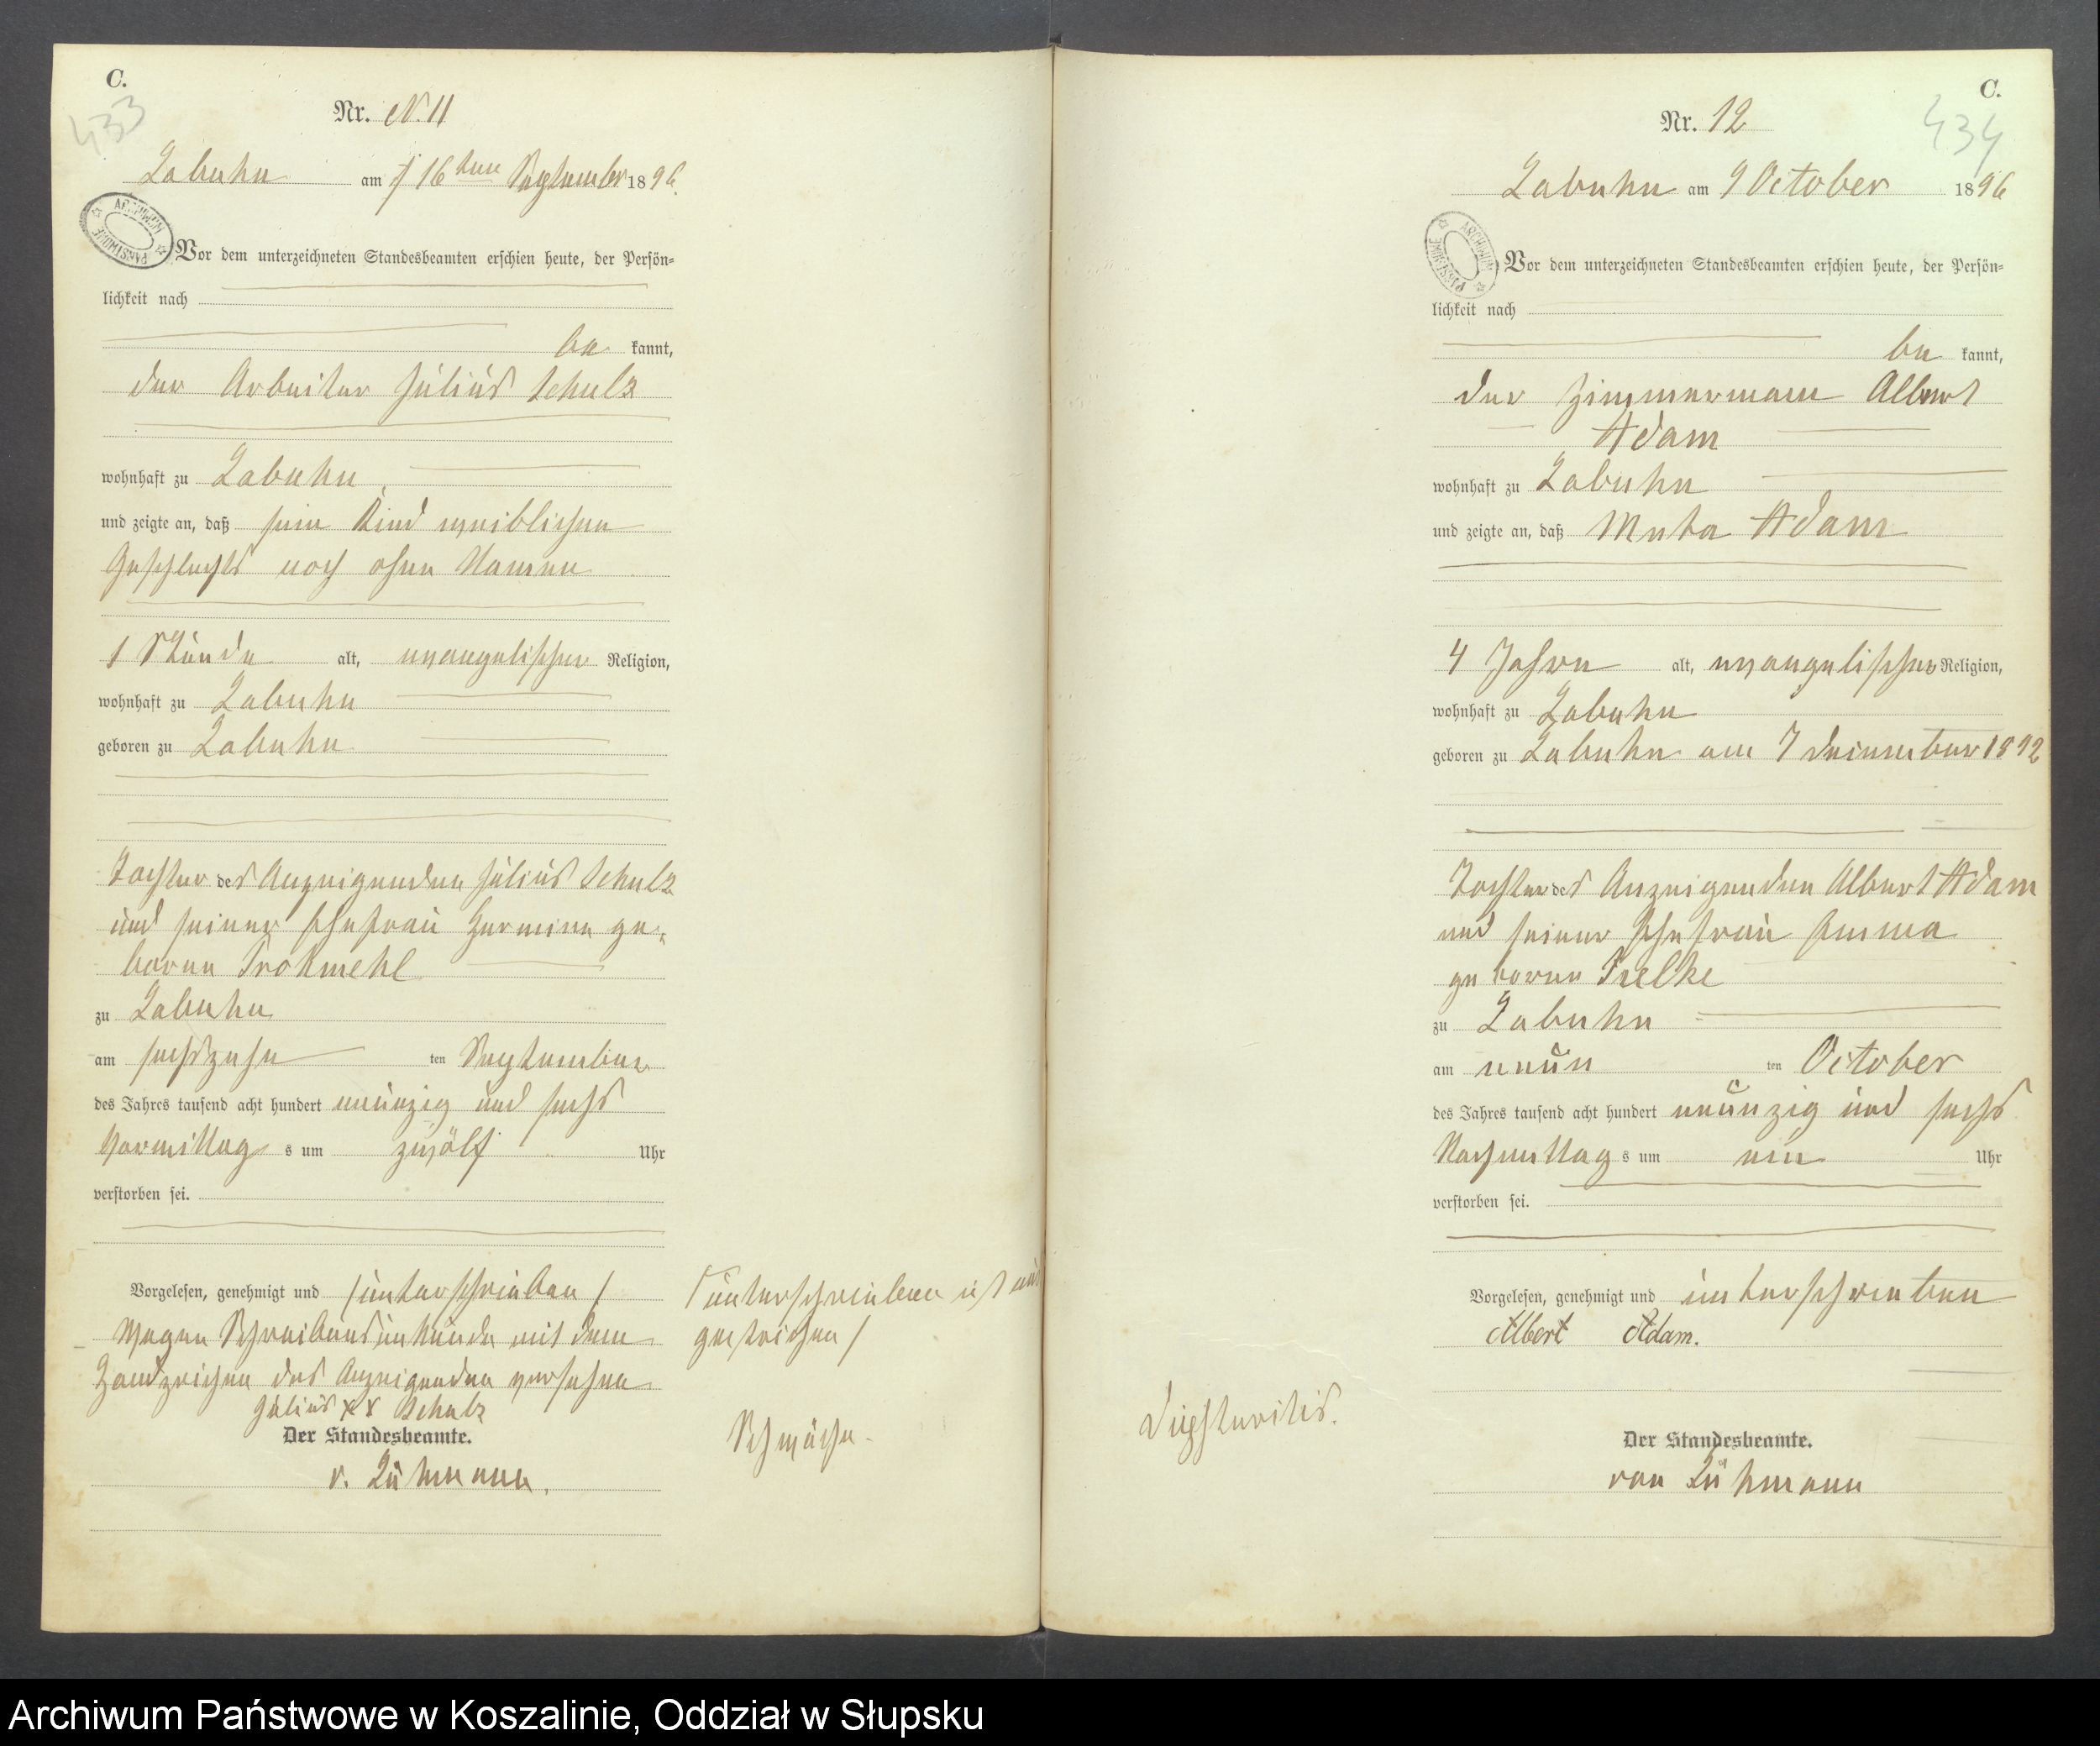 C.
433
Nr. N. 11
Labuhn am 16ten September 1896.
ARCHIWUM PAŃSTWOWE
Vor dem unterzeichneten Standesbeamten erschien heute, der Persön=
lichkeit nach
be kannt,
der Arbeiter Julius Schulz
wohnhaft zu Labuhn
und zeigte an, daß sein Kind weiblichen
Geschlechts noch ohne Namen
1 Stunde alt, evangelischer Religion,
wohnhaft zu Labuhn
geboren zu Labuhn
Tochter des Anzeigenden Julius Schulz
und seiner Ehefrau Hermine ge=
borene Trokmehl
zu Labuhn
am sechszehn ten September
des Jahres tausend acht hundert neunzig und sechs
Vormittag s um zwölf Uhr
verstorben sei.
Vorgelesen, genehmigt und /unterschrieben/
wegen Schreibensunkunde mit dem
Handzeichen des Anzeigenden versehen
Julius xx Schulz
Der Standesbeamte.
v. Lühmann.
/unterschrieben ist
gestrichen/
Schwäche.
C.
434
Nr. 12
Labuhn am 9 October 1896
ARCHIWUM PAŃSTWOWE
Vor dem unterzeichneten Standesbeamten erschien heute, der Persön=
lichkeit nach
be kannt,
der Zimmermann Albert
Adam
wohnhaft zu Labuhn
und zeigte an, daß Meta Adam
4 Jahre alt, evangelischer Religion,
wohnhaft zu Labuhn
geboren zu Labuhn am 7 1892
Tochter des Anzeigenden Albert Adam
und seiner Ehefrau Emma
geborene Trelke
zu Labuhn
am neun ten October
des Jahres tausend acht hundert neunzig und sechs
Nachmittag s um ein Uhr
verstorben sei.
Vorgelesen, genehmigt und unterschrieben
Albert Adam.
Diphteritis.
Der Standesbeamte.
von Lühmann
Archiwum Państwowe w Koszalinie, Oddział w Słupsku